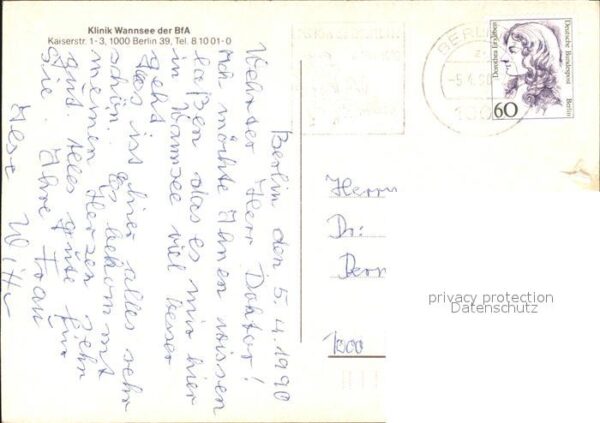 Klinik Wannsee der BfA
Kaiserstr. 1-3, 1000 Berlin 39, Tel. 8 10 01-0
Berlin den 5.4.1990
Wehrter Herr Doktor!
Ich möchte Ihnen wissen
laßen das es mir hier
in Wannsee viel besser
geht
Das ist hier alles sehr
schön. Es bekommt
meinen Herzen sehr
gut. Alles gute für
Sie. Ihre Frau
BERLIN
-5.4.90
100
Dorothea Erxleben
Deutsche Bundespost
Berlin
60
Herrn
Dr.
1000
privacy protection
Datenschutz